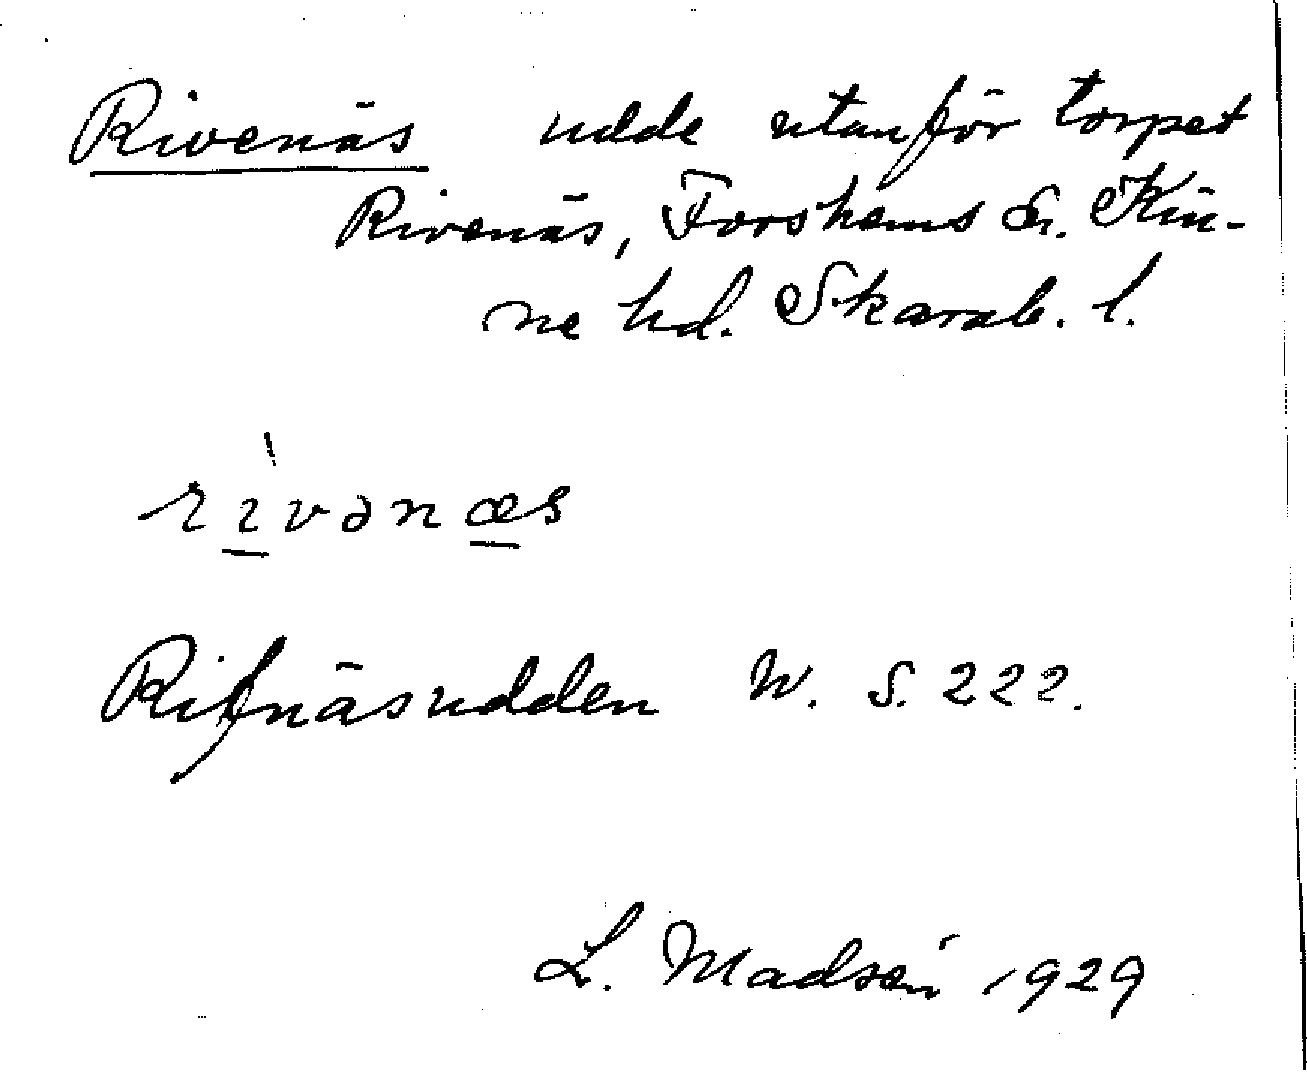 Rivenäs udde utanför torpet
Rivenäs, Forshems sn. Kin-
ne hd. Skarab. l.
rivənæs
Rifnäsudden W. S. 222.
L. Madsén 1929